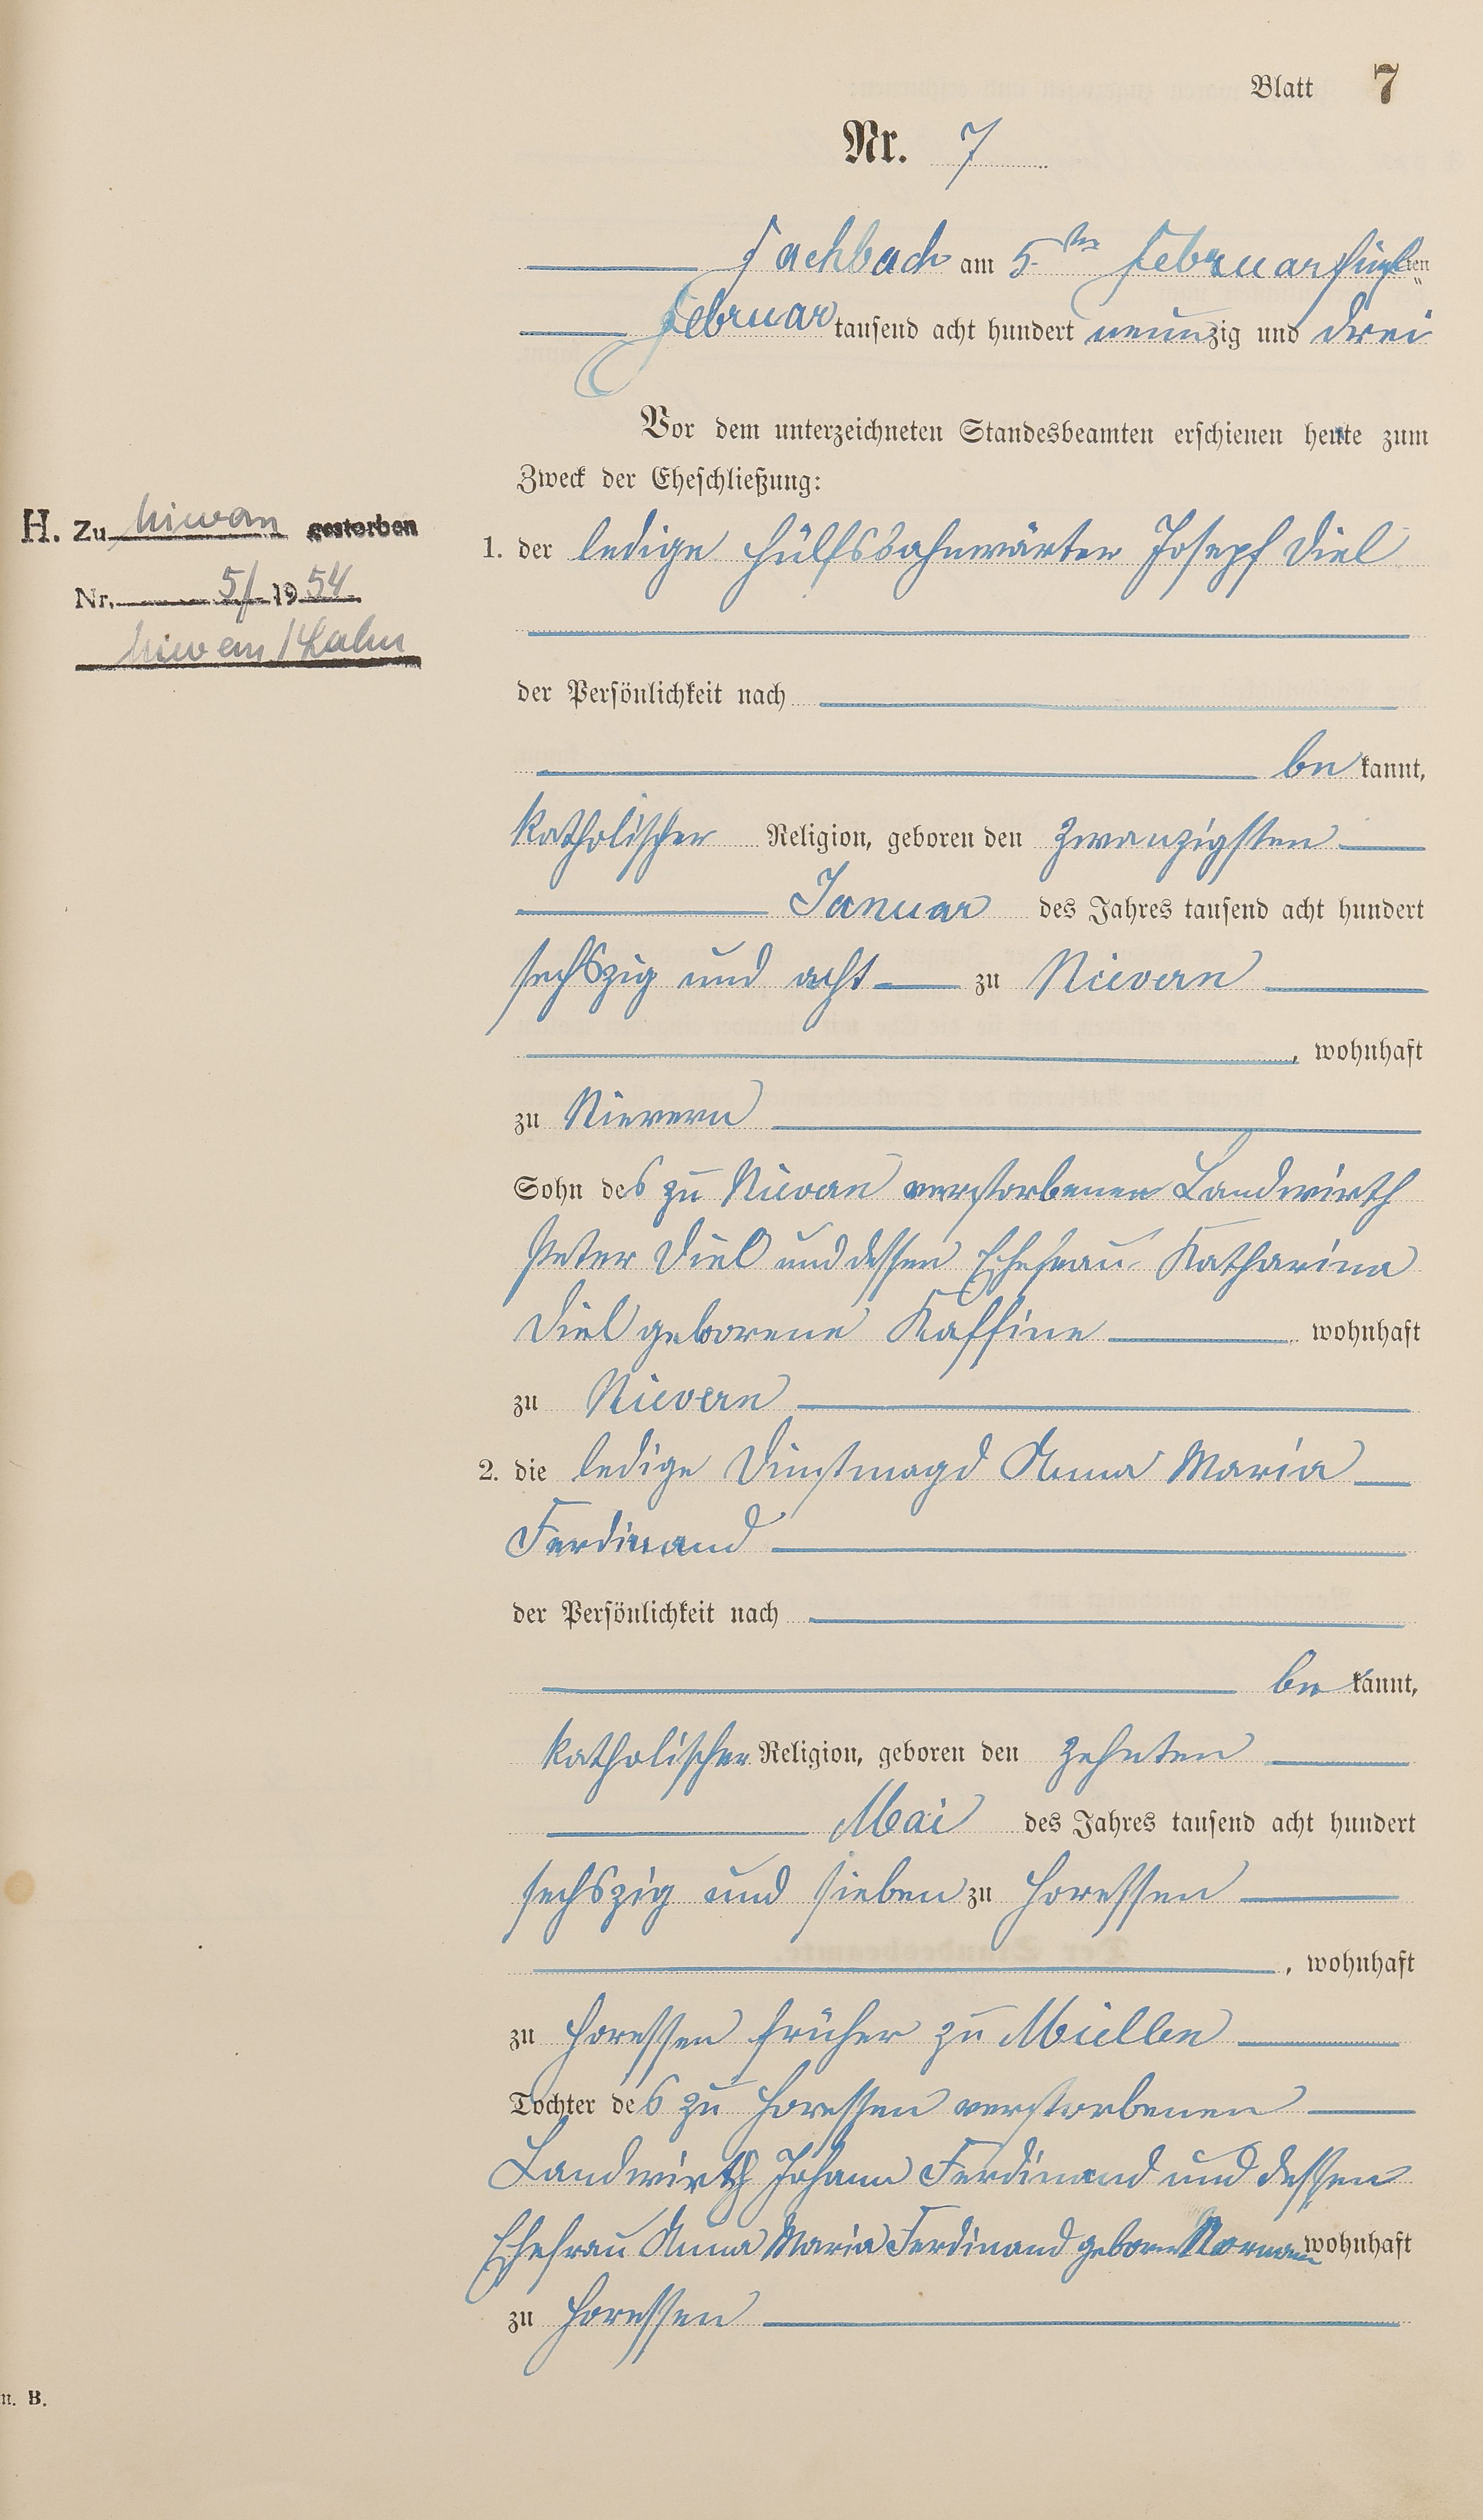 Blatt 7
Nr. 7
Fachbach am 5ten Februar fünften
Februar tausend acht hundert neunzig und drei
Vor dem unterzeichneten Standesbeamten erschienen heute zum
Zweck der Eheschließung:
H. Zu Nievern gestorben
Nr. 5/1954
Nievern/Lahn
1. der ledige Hülfsbahnwärter Josepf Diel
der Persönlichkeit nach
be kannt,
katholischer Religion, geboren den zwanzigsten
Januar des Jahres tausend acht hundert
sechszig und acht zu Nievern
, wohnhaft
zu Nievern
Sohn des zu Nievern verstorbenen Landwirth
Peter Diel und dessen Ehefrau Katharina
Diel geborene Kaffine wohnhaft
zu Nievern
2. die ledige Dinstmagd Anna Maria
Ferdinand
der Persönlichkeit nach
be kannt,
katholischer Religion, geboren den zehnten
Mai des Jahres tausend acht hundert
sechszig und sieben zu Horessen
, wohnhaft
zu Horessen früher zu Miellen
Tochter des zu Horessen verstorbenen
Landwirth Johann Ferdinand und dessen
Ehefrau Anna Maria Ferdinand geborn wohnhaft
zu Horessen
n. B.